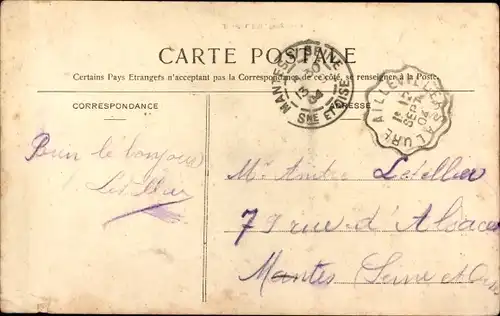 CARTE POSTALE
Certains Pays Etrangers n'acceptant pas la Correspondance de ce côté, se renseigner à la Poste.
CORRESPONDANCE
ADRESSE
MANTES S. SEINE
13
04
SNE ET OISE
AILLEVILLERS A LURE
SEPT
04
Bien le bonjour
Letellier
Mr. André Letellier
79 rue d'Alsace
Mantes Seine et Oise